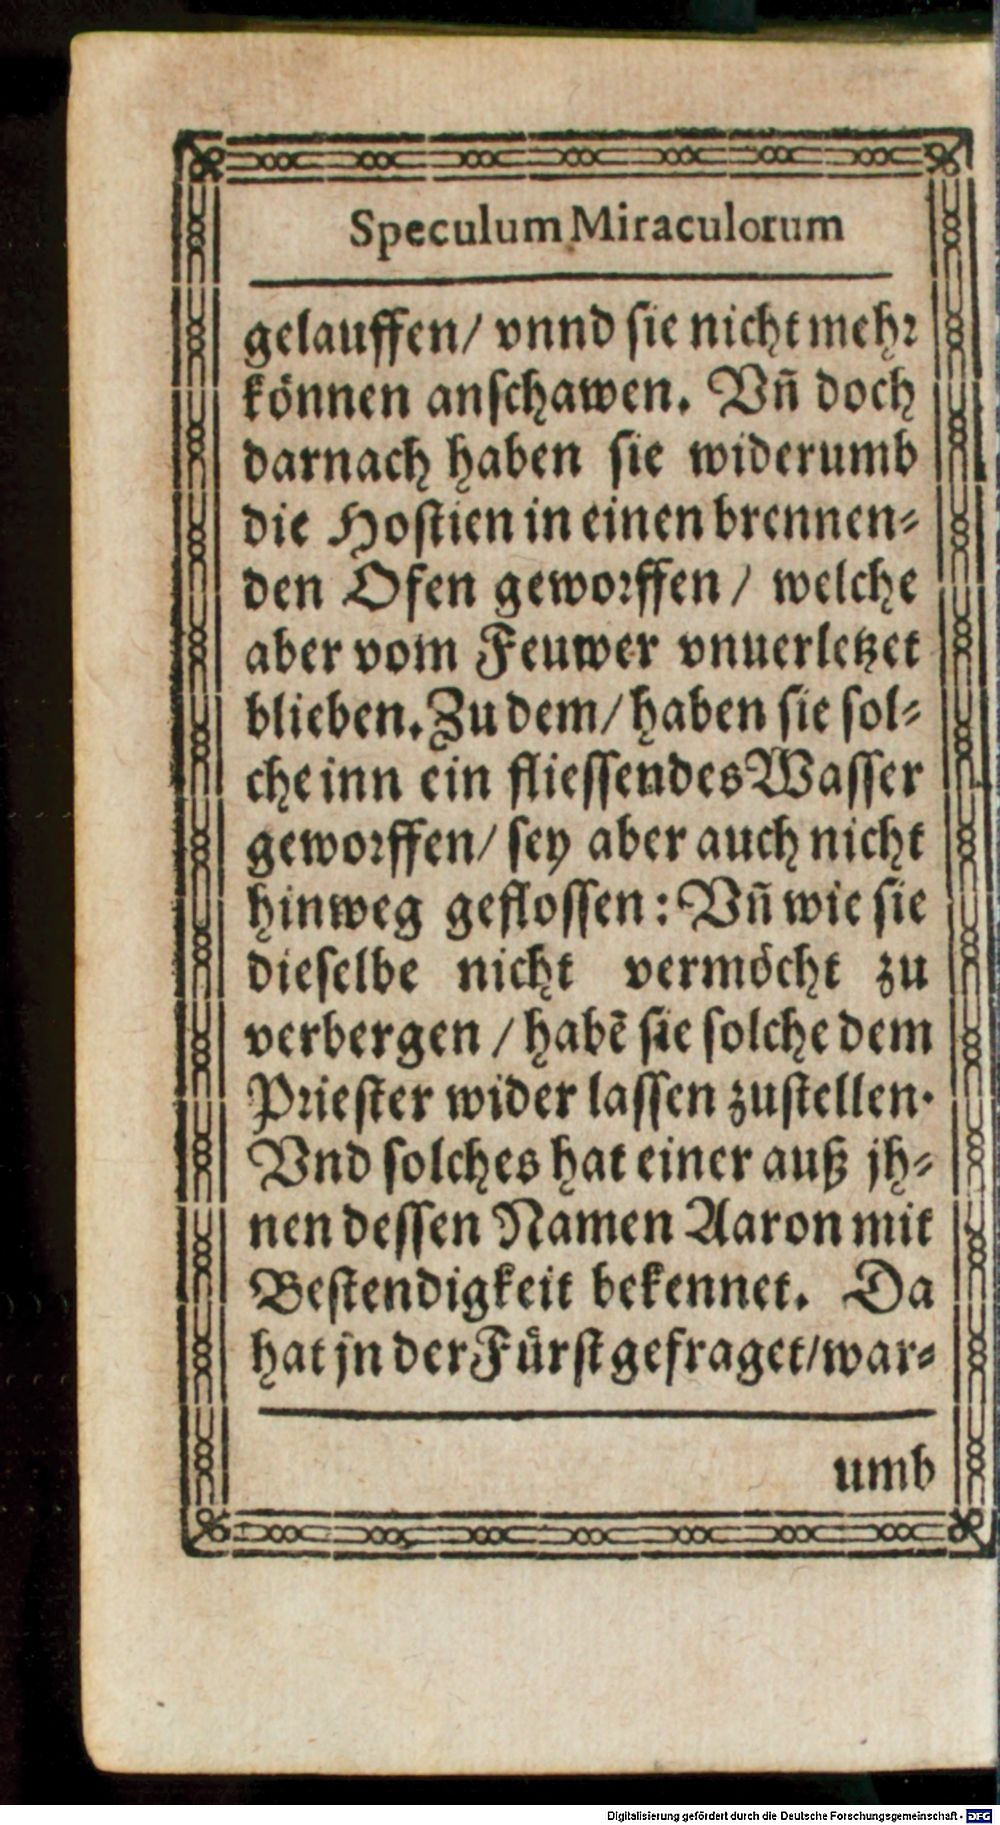 Speculum Miraculorum
gelauffen/ vnnd sie nicht mehr
können anschawen. Vñ doch
darnach haben sie widerumb
die Hostien in einen brennen-
den Ofen geworffen / welche
aber vom Feuwer vnuerletzet
blieben. Zu dem/ haben sie sol-
che inn ein fliessendes Wasser
geworffen/ sey aber auch nicht
hinweg geflossen: Vñ wie sie
dieselbe nicht vermöcht zu
verbergen / habẽ sie solche dem
Priester wider lassen zustellen.
Vnd solches hat einer auß jh-
nen dessen Namen Aaron mit
Bestendigkeit bekennet. Da
hat jn der Fürst gefraget/ war-
umb
Digitalisierung gefördert durch die Deutsche Forschungsgemeinschaft - DFG